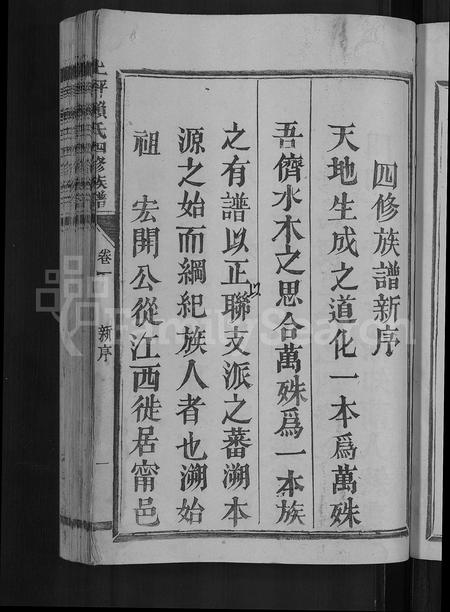 四修族譜新序
天地生成之道化一本爲萬殊
吾儕水木之思合萬殊爲一本族
之有譜以正聯以支派之蕃溯本
源之始而綱紀族人者也溯始
祖 宏開公從江西徙居甯邑
上坪賴氏四修族譜
卷一
新序
一
FamilySearch